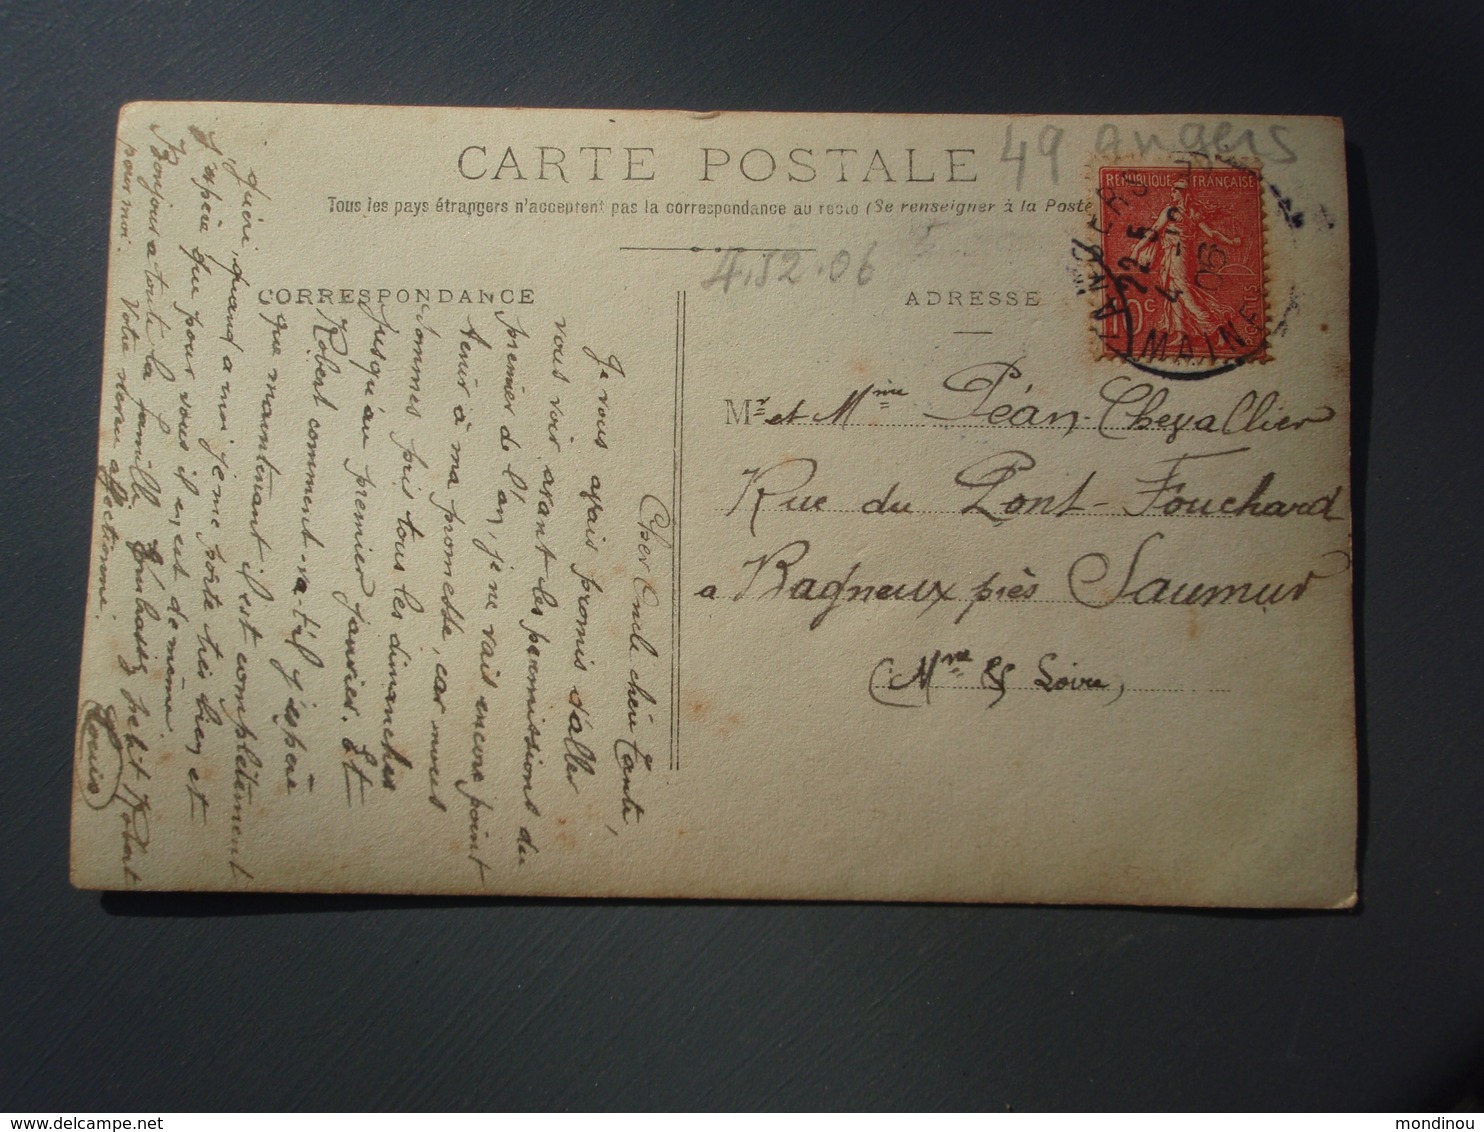 CARTE POSTALE
49 Angers
Tous les pays étrangers n'acceptent pas la correspondance au recto (Se renseigner à la Poste
4.12.06
CORRESPONDANCE
ADRESSE
REPUBLIQUE FRANÇAISE
10c
POSTES
ANGERS
22 5
4 -12
06
MAINE
Mr et Mme Péan-Chevallier
Rue du Pont-Fouchard
a Bagneux près Saumur
(Mne & Loire)
Cher Oncle chère Tante,
Je vous avais promis d'aller
vous voir avant les permissions du
premier de l'an, je ne vais encore point
tenir à ma promesse, car nous
sommes pris tous les dimanches
jusqu'au premier janvier. Et
Robert comment va-t-il j'espère
que maintenant il est complètement
guéri, quand a moi je me porte très bien et
j'espère que pour vous il en est de même.
Bonjour a toute la famille. Embrassez petit Robert
pour moi. Votre neveu affectionné.
Louis
mondinou